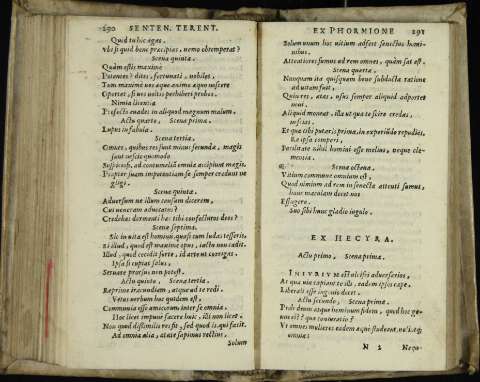 290 SENTEN. TERENT.
Quid tu hic agas.
Vbi si quid bene præcipias, nemo obtemperat?
Scena quinta.
Quàm estis maximè
Potentes? dites, fortunati, nobiles,
Tam maximè vos æquo animo æqua noscere
Oportet, si vos voltis perhiberi probos.
Nimia licentia
Profectò euadet in aliquod magnum malum.
Actu quarto, Scena prima.
Lupus in fabula.
Scena tertia.
Omnes, quibus res sunt minus secundæ, magis
sunt nescio quomodo
Suspiciosi, ad contumeliā omnia accipiunt magis.
Propter suam impotentiam se semper credunt ne
gligi.
Scena quinta.
Aduersum ne illum causam dicerem,
Cui veneram aduocatus?
Scena septima.
Sic in vita est hominū, quasi cum ludas tesseris.
Si illud, quod est maximè opus, iactu non cadit.
Illud, quod cecidit forte, id arte vt corrigas.
Ipsa si cupiat salus,
Seruare prorsus non potest.
Actu quinto, Scena tertia.
Reprime iracundiam, atque ad te redi.
Vetus verbum hoc quidem est,
Communia esse amicorum inter se omnia.
Hoc licet impunè facere huic, illi non licet.
Non quod dissimilis res sit, sed quod is qui facit.
Ad omnia alia, ætate sapimus rectius,
Solum
EX PHORMIONE 291
Solum vnum hoc vitium adfert senectus homi-
nibus.
Attentiores sumus ad rem omnes, quàm sat est.
Scena quarta.
Nunquam ita quisquam bene subducta ratione
ad vitam fuit,
Quin res, ætas, vsus semper aliquid adportet
noui.
Aliquid moneat, illa vt quæ te scire credas,
nescias
Et quæ tibi putaris prima, in experiūdo repudies,
Re ipsa comperi,
Facilitate nihil homini esse melius, neque cle-
mentia.
Scena octaua.
Vitium commune omnium est,
Quod nimium ad rem in senecta attenti sumus,
hanc maculam decet nos
Effugere.
Suo sibi hunc gladio iugulo.
EX HECYRA.
Actu primo, Scena prima.
INIVRIVM est vlcisci aduersarios,
At qua via captant te illi, eadem ipsos capi.
Liberali esse ingenio decet.
Actu secundo, Scena prima.
Proh deum atque hominum fidem, quod hoc ge-
nus est? quæ coniuratio?
Vt omnes mulieres eadem æquè studeant, nolintq́;
omnia:
N 2 Nequ